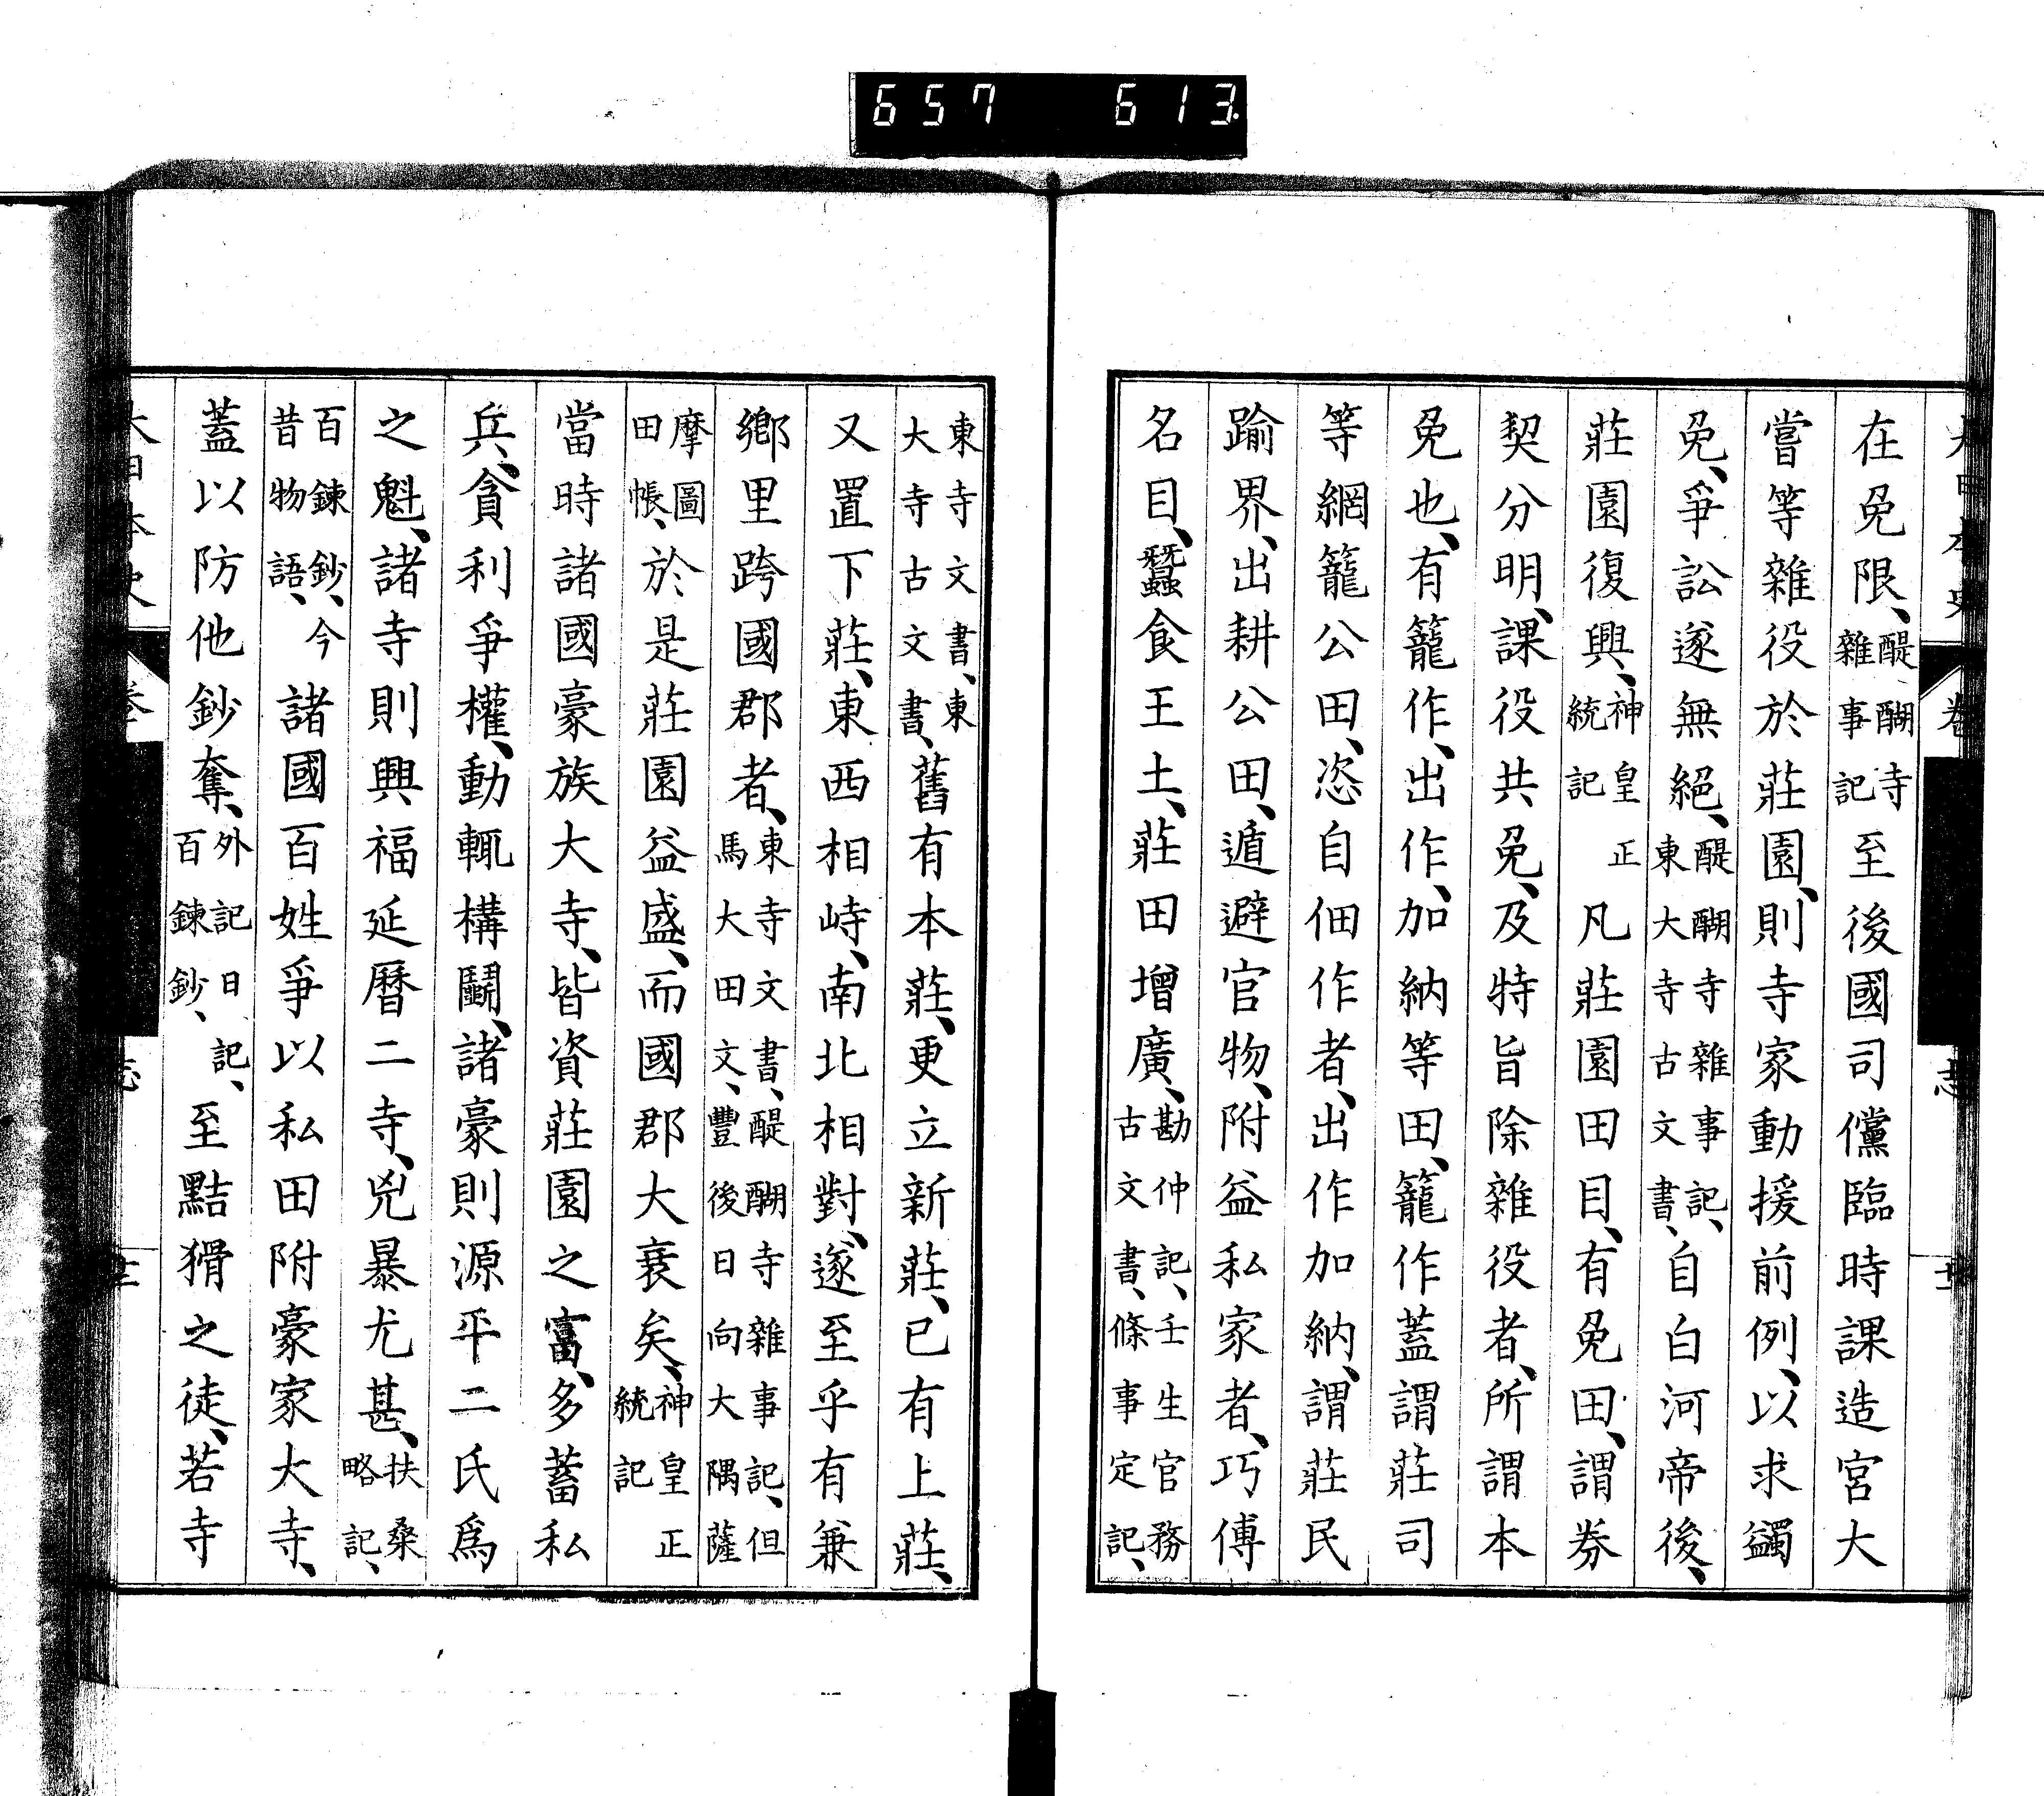 657 613
在免限、醍醐寺雜事記至後國司儻臨時課造宮大
嘗等雜役於莊園、則寺家動援前例、以求蠲
免、爭訟遂無絕、醍醐寺雜事記、東大寺古文書、自白河帝後、
莊園復興、神皇正統記凡莊園田目、有免田、謂券
契分明、課役共免、及特旨除雜役者、所謂本
免也、有籠作、出作、加納等田、籠作蓋謂莊司
等網籠公田、恣自佃作者、出作加納、謂莊民
踰界、出耕公田、遁避官物、附益私家者、巧傅
名目、蠶食王土、莊田增廣、勘仲記、壬生官務古文書、條事定記、
東寺文書、東大寺古文書、舊有本莊、更立新莊、已有上莊、
又置下莊、東西相峙、南北相對、遂至乎有兼
鄉里跨國郡者、東寺文書、醍醐寺雜事記、但馬大田文、豐後日向大隅薩
摩圖田帳、於是莊園益盛、而國郡大衰矣、神皇正統記
當時諸國豪族大寺、皆資莊園之富、多蓄私
兵、貪利爭權、動輒構鬪、諸豪則源平二氏爲
之魁、諸寺則興福延曆二寺、兇暴尤甚、扶桑略記、
百鍊鈔、今昔物語、諸國百姓爭以私田附豪家大寺、
蓋以防他鈔奪、外記日記、百鍊鈔、至黠猾之徒、若寺
大日本史
卷
志